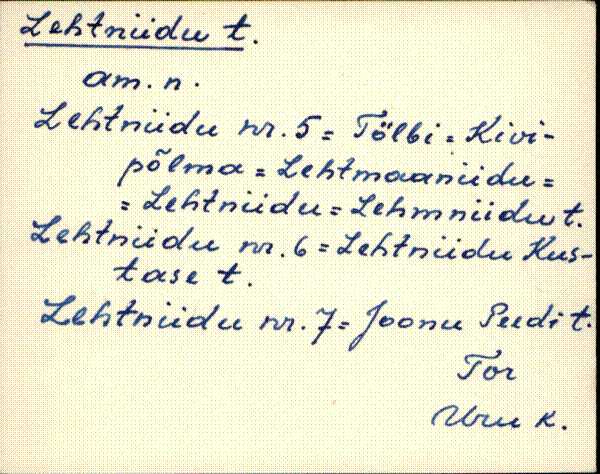 Lehtniidu t.
am. n.
Lehtniidu nr. 5 = Tölbi = Kivi-
põlma = Lehtmaaniidu =
= Lehtniidu = Lehmniidu t.
Lehtniidu nr. 6 = Lehtniidu Kus-
tase t.
Lehtniidu nr. 7 = Joonu Peedi t.
Tor
Uru k.